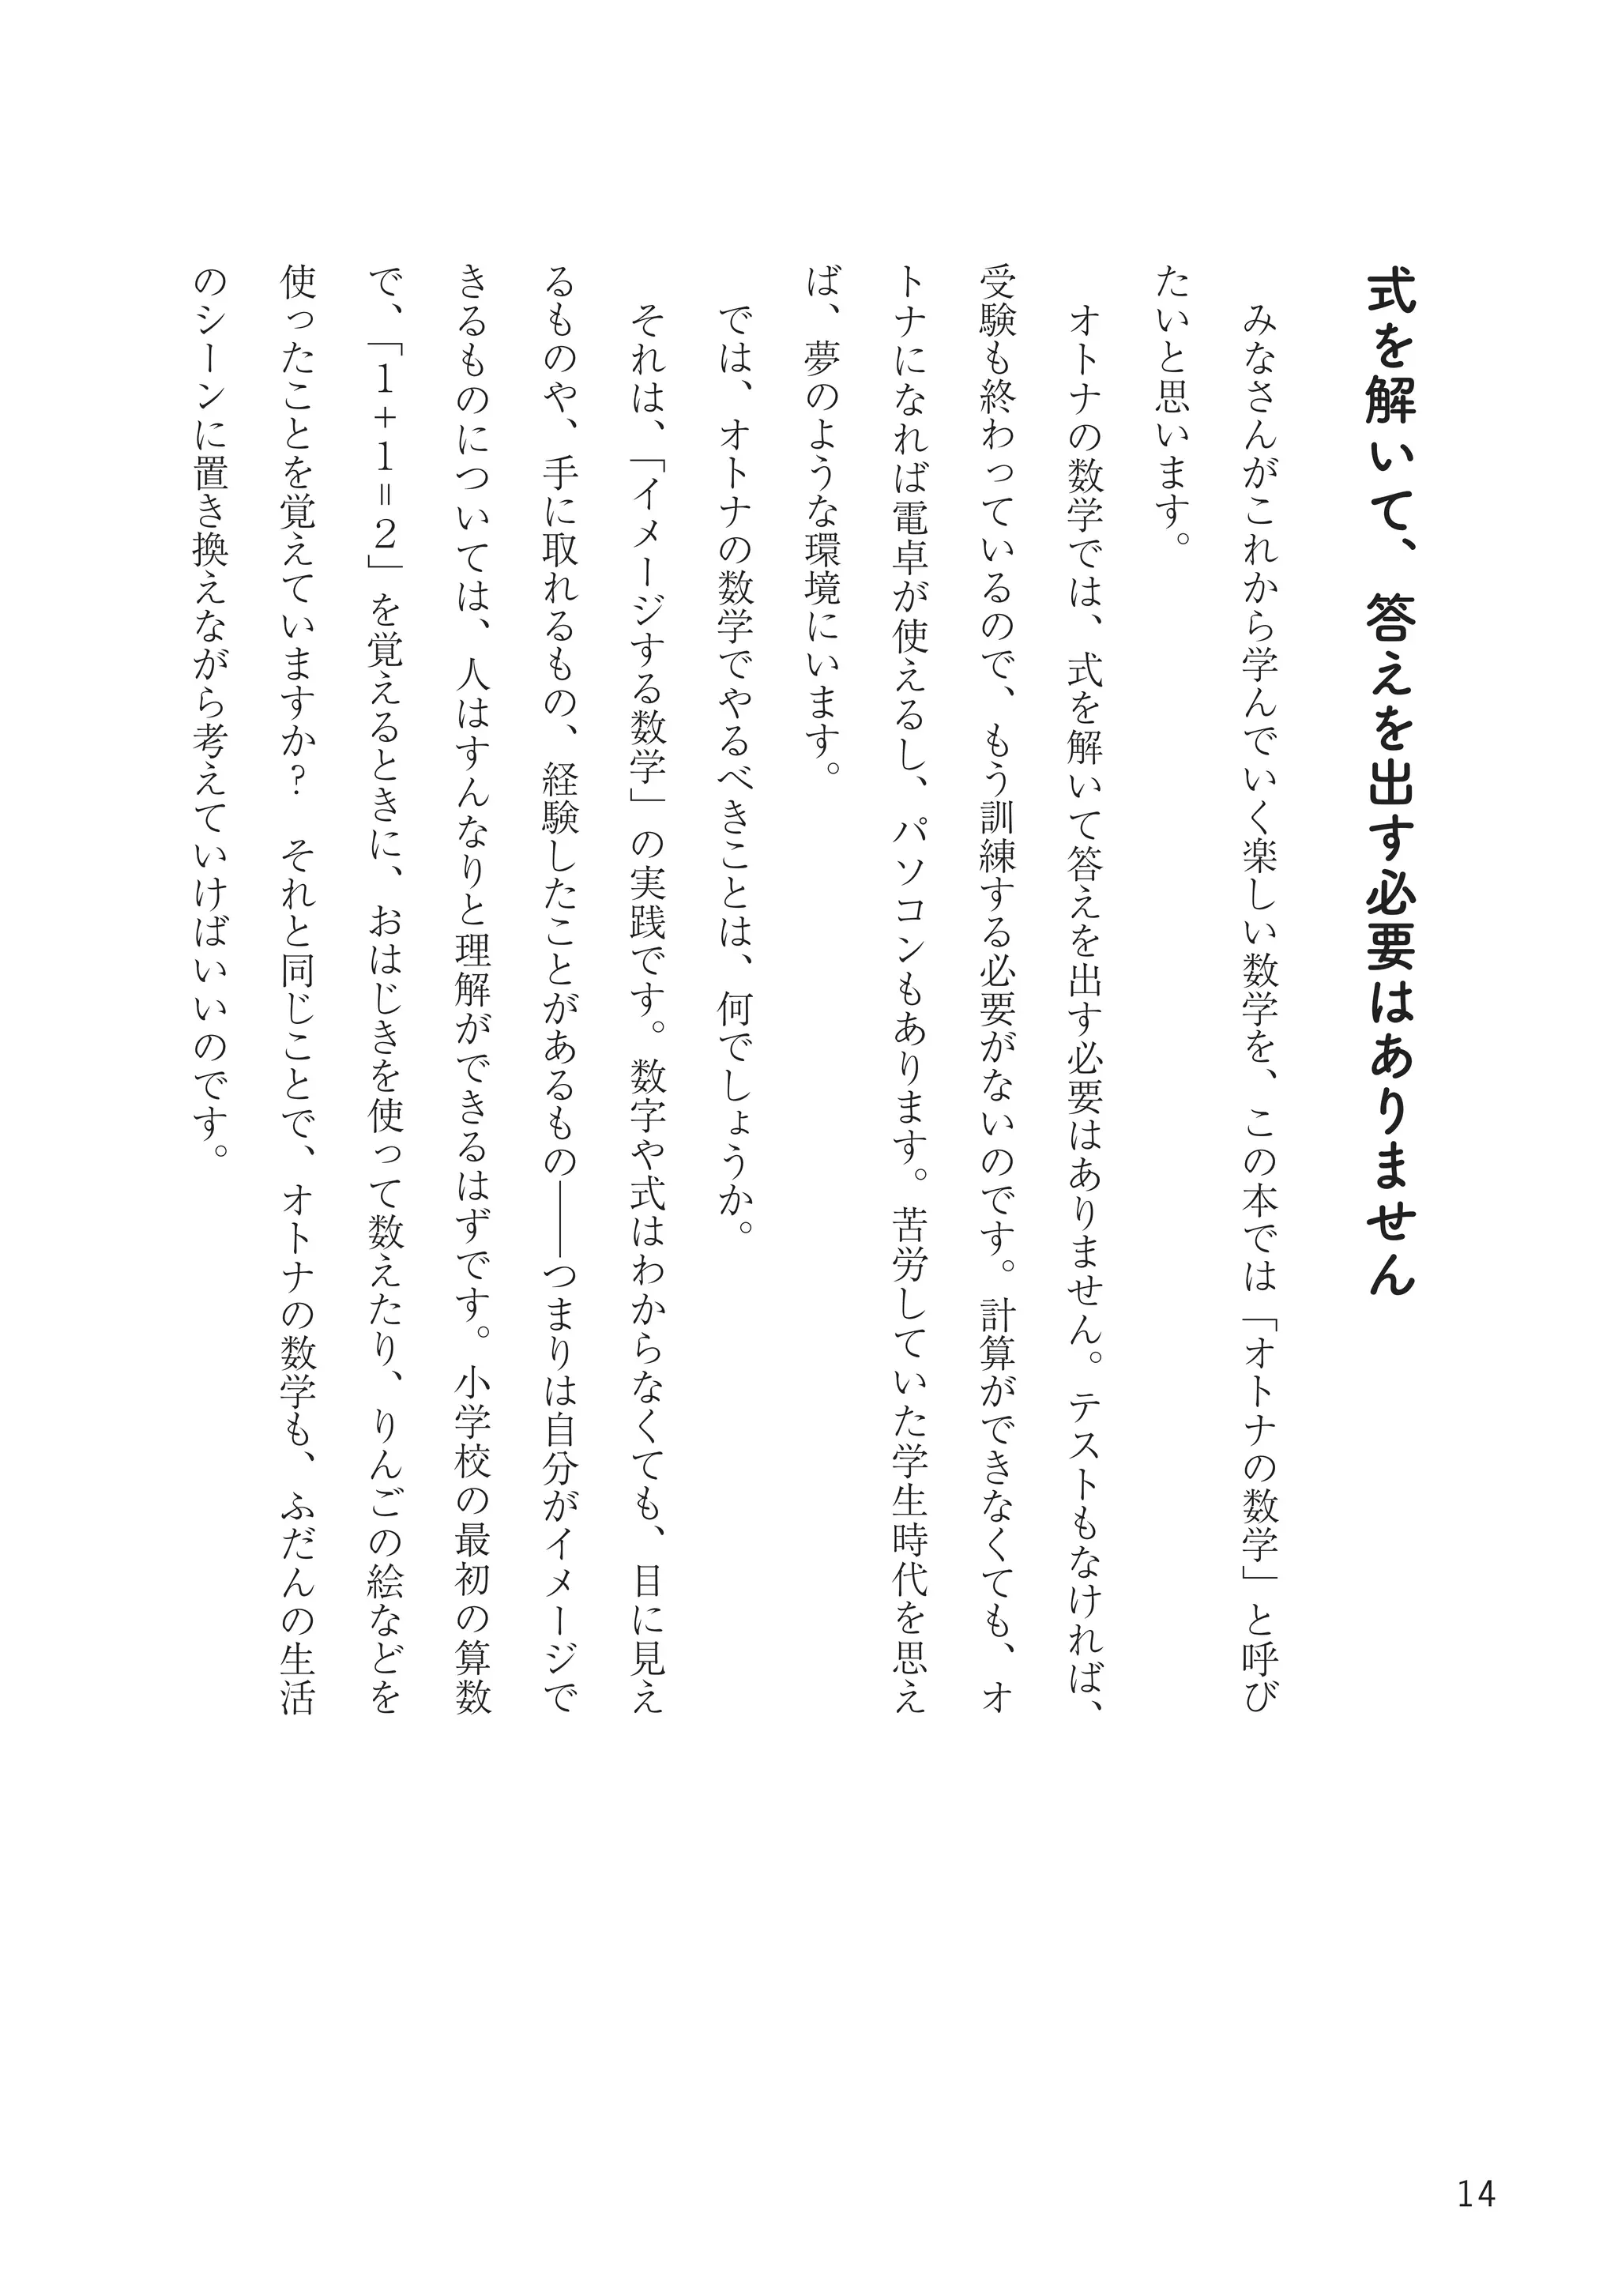 式を解いて、答えを出す必要はありません
　みなさんがこれから学んでいく楽しい数学を、この本では「オトナの数学」と呼び
たいと思います。
　オトナの数学では、式を解いて答えを出す必要はありません。テストもなければ、
受験も終わっているので、もう訓練する必要がないのです。計算ができなくても、オ
トナになれば電卓が使えるし、パソコンもあります。苦労していた学生時代を思え
ば、夢のような環境にいます。
　では、オトナの数学でやるべきことは、何でしょうか。
　それは、「イメージする数学」の実践です。数字や式はわからなくても、目に見え
るものや、手に取れるもの、経験したことがあるもの――つまりは自分がイメージで
きるものについては、人はすんなりと理解ができるはずです。小学校の最初の算数
で、「1+1=2」を覚えるときに、おはじきを使って数えたり、りんごの絵などを
使ったことを覚えていますか？　それと同じことで、オトナの数学も、ふだんの生活
のシーンに置き換えながら考えていけばいいのです。
14